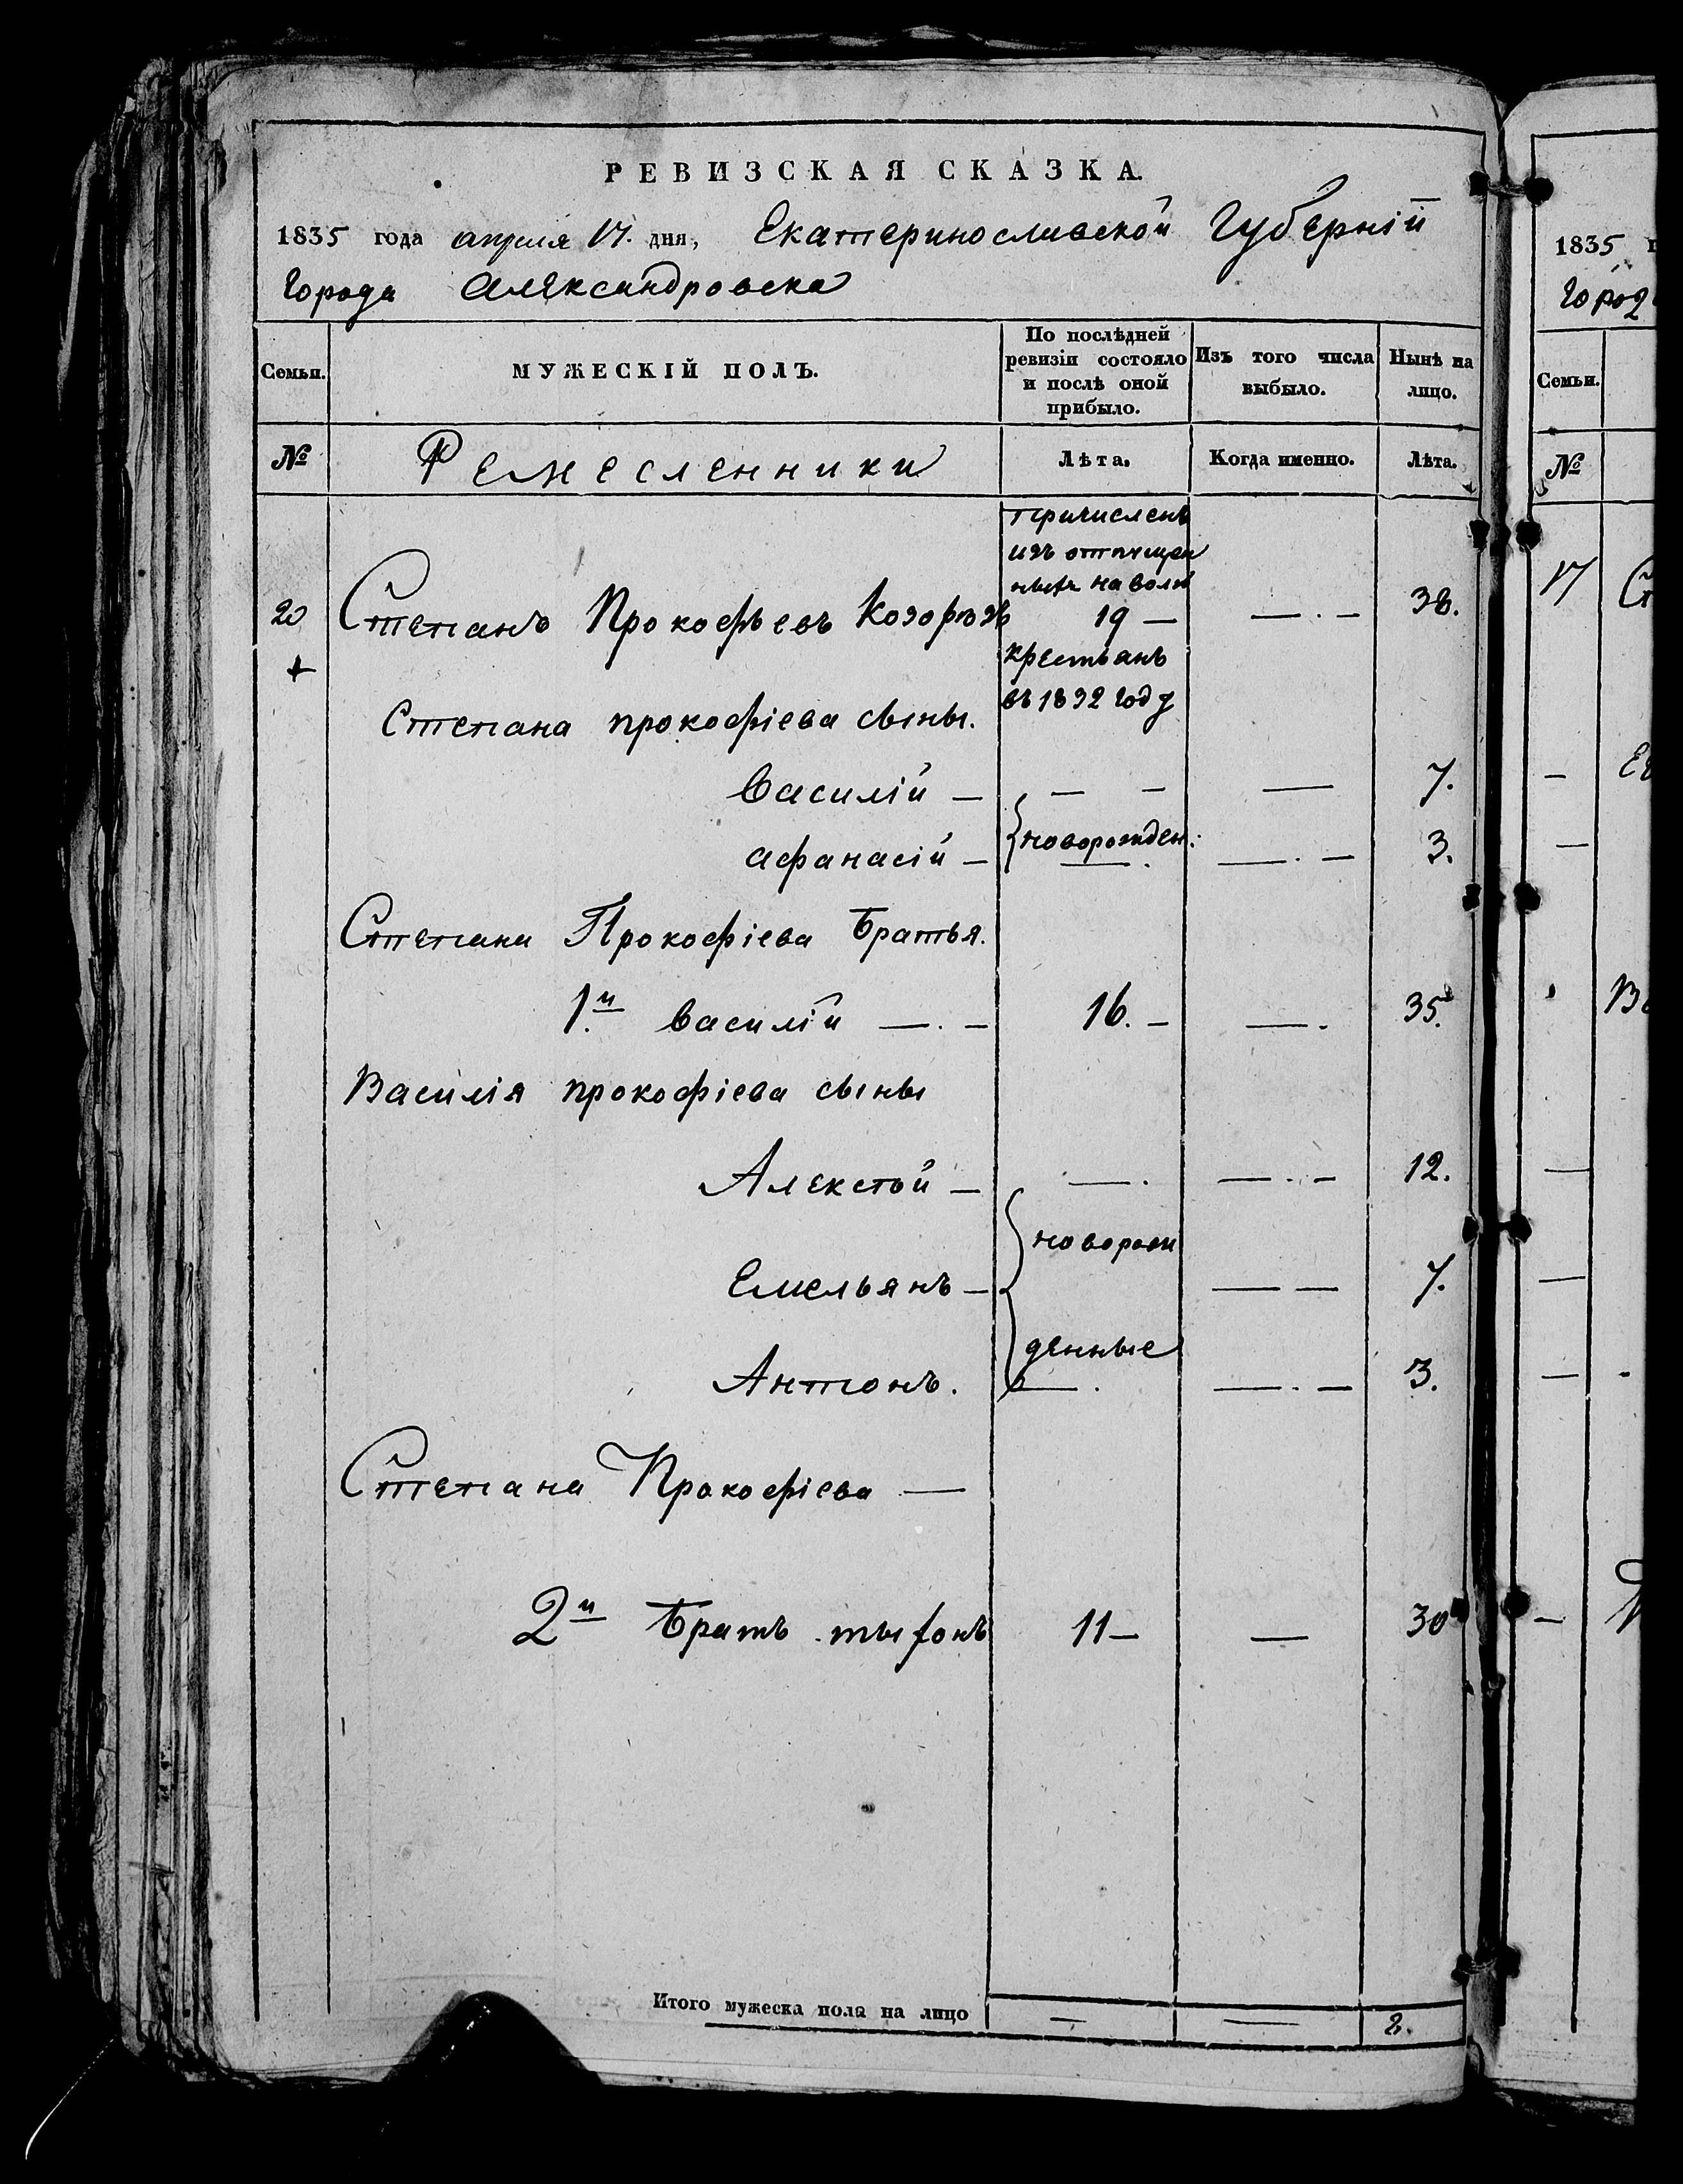 РЕВИЗСКАЯ СКАЗКА.
1835 года апреля 17. дня, Екатеринославской Губерніи
Города Александровска
Семьи. МУЖЕСКІЙ ПОЛЪ. По послѣдней ревизіи состояло и послѣ оной прибыло. Изъ того числа выбыло. Нынѣ на лицо.
№ Ремесленники Лѣта. Когда именно. Лѣта.
Причисленъ
изъ отпущен
ныхъ на волю
20 Степанъ Прокофьевъ 19 — — . — 38.
крестьянъ
въ 1832 году
Степана прокофіева сыны.
Василій — — — — 7.
Афанасій — новорожден: — . — 3.
Степана Прокофіева Братья.
1.й Василій — . — 16. — — . 35.
Василія прокофіева сыны
Алексѣй — — . — . — 12.
новорож
Емельянъ — — — 7.
денные
Антонъ. — . — . — 3.
Степана Прокофіева —
2й Братъ 11 — — 30
Итого мужеска пола на лицо — —
1835
Семьи.
№
17